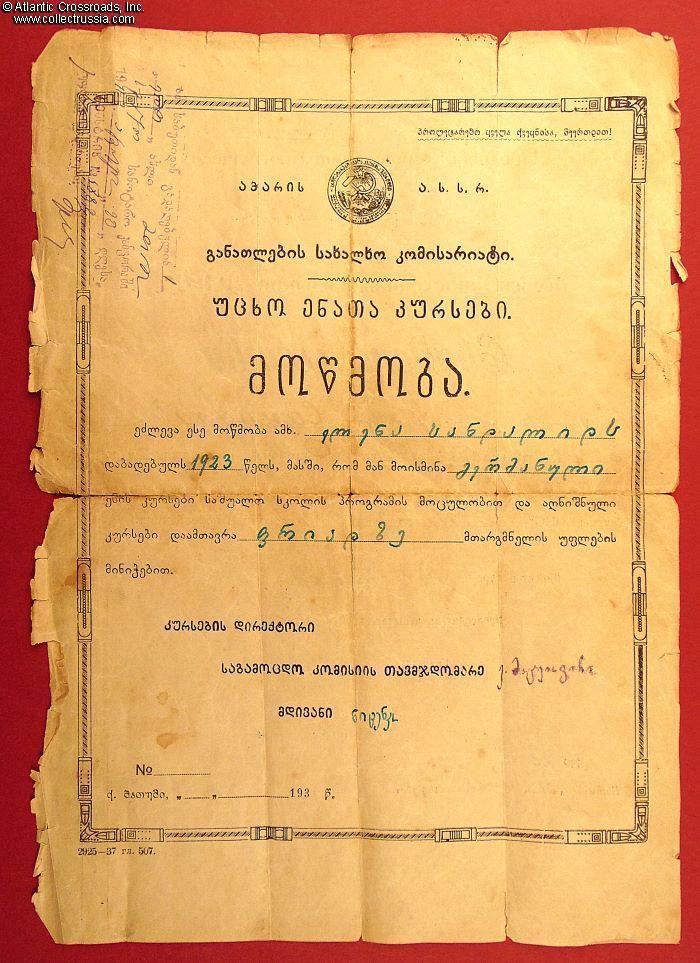 © Atlantic Crossroads, Inc.
www.collectrussia.com
პროლეტარებო ყველა ქვეყნისა, შეერთდით!
აჭარის ა. ს. ს. რ.
განათლების სახალხო კომისარიატი.
უცხო ენათა კურსები.
მოწმობა.
ეძლევა ესე მოწმობა ამხ. ელენა სანდალიდს
დაბადებულს 1923 წელს, მასში, რომ მან მოისმინა გერმანული
ენის კურსები საშუალო სკოლის პროგრამის მოცულობით და აღნიშნული
კურსები დაამთავრა ფრიადზე მთარგმნელის უფლების
მინიჭებით.
კურსების დირექტორი
საგამოცდო კომისიის თავმჯდომარე
მდივანი
№
ქ. ბათუმი, „ „ 193 წ.
2925—37 гл. 507.